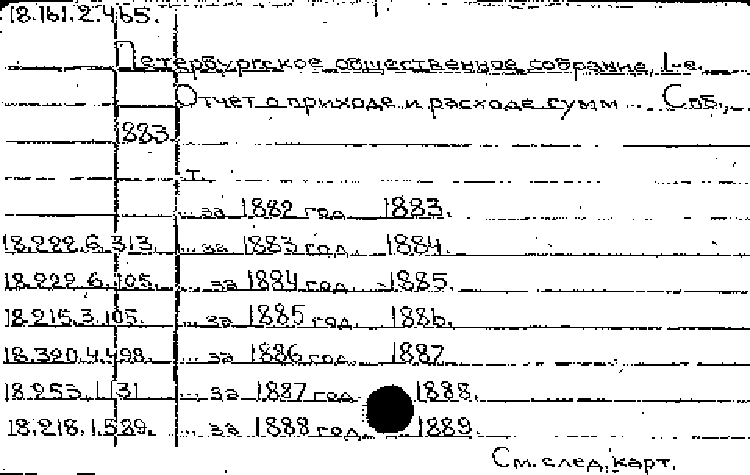 18.161.2.465.
Петербургское общественное собрание, 1-е.
Отчет о приходе и расходе сумм ... Спб.,
1883.
т.
... за 1882 год. 1883.
18.222.6.313. ... за 1883 год. 1884.
18.222.6.105. ... за 1884 год. 1885.
18.215.3.105. ... за 1885 год. 1886.
18.390.4.498. ... за 1886 год. 1887
18.253.1.31 ... за 1887 год 1888.
18.218.1.589. ... за 1888 год. 1889.
См. след. карт.